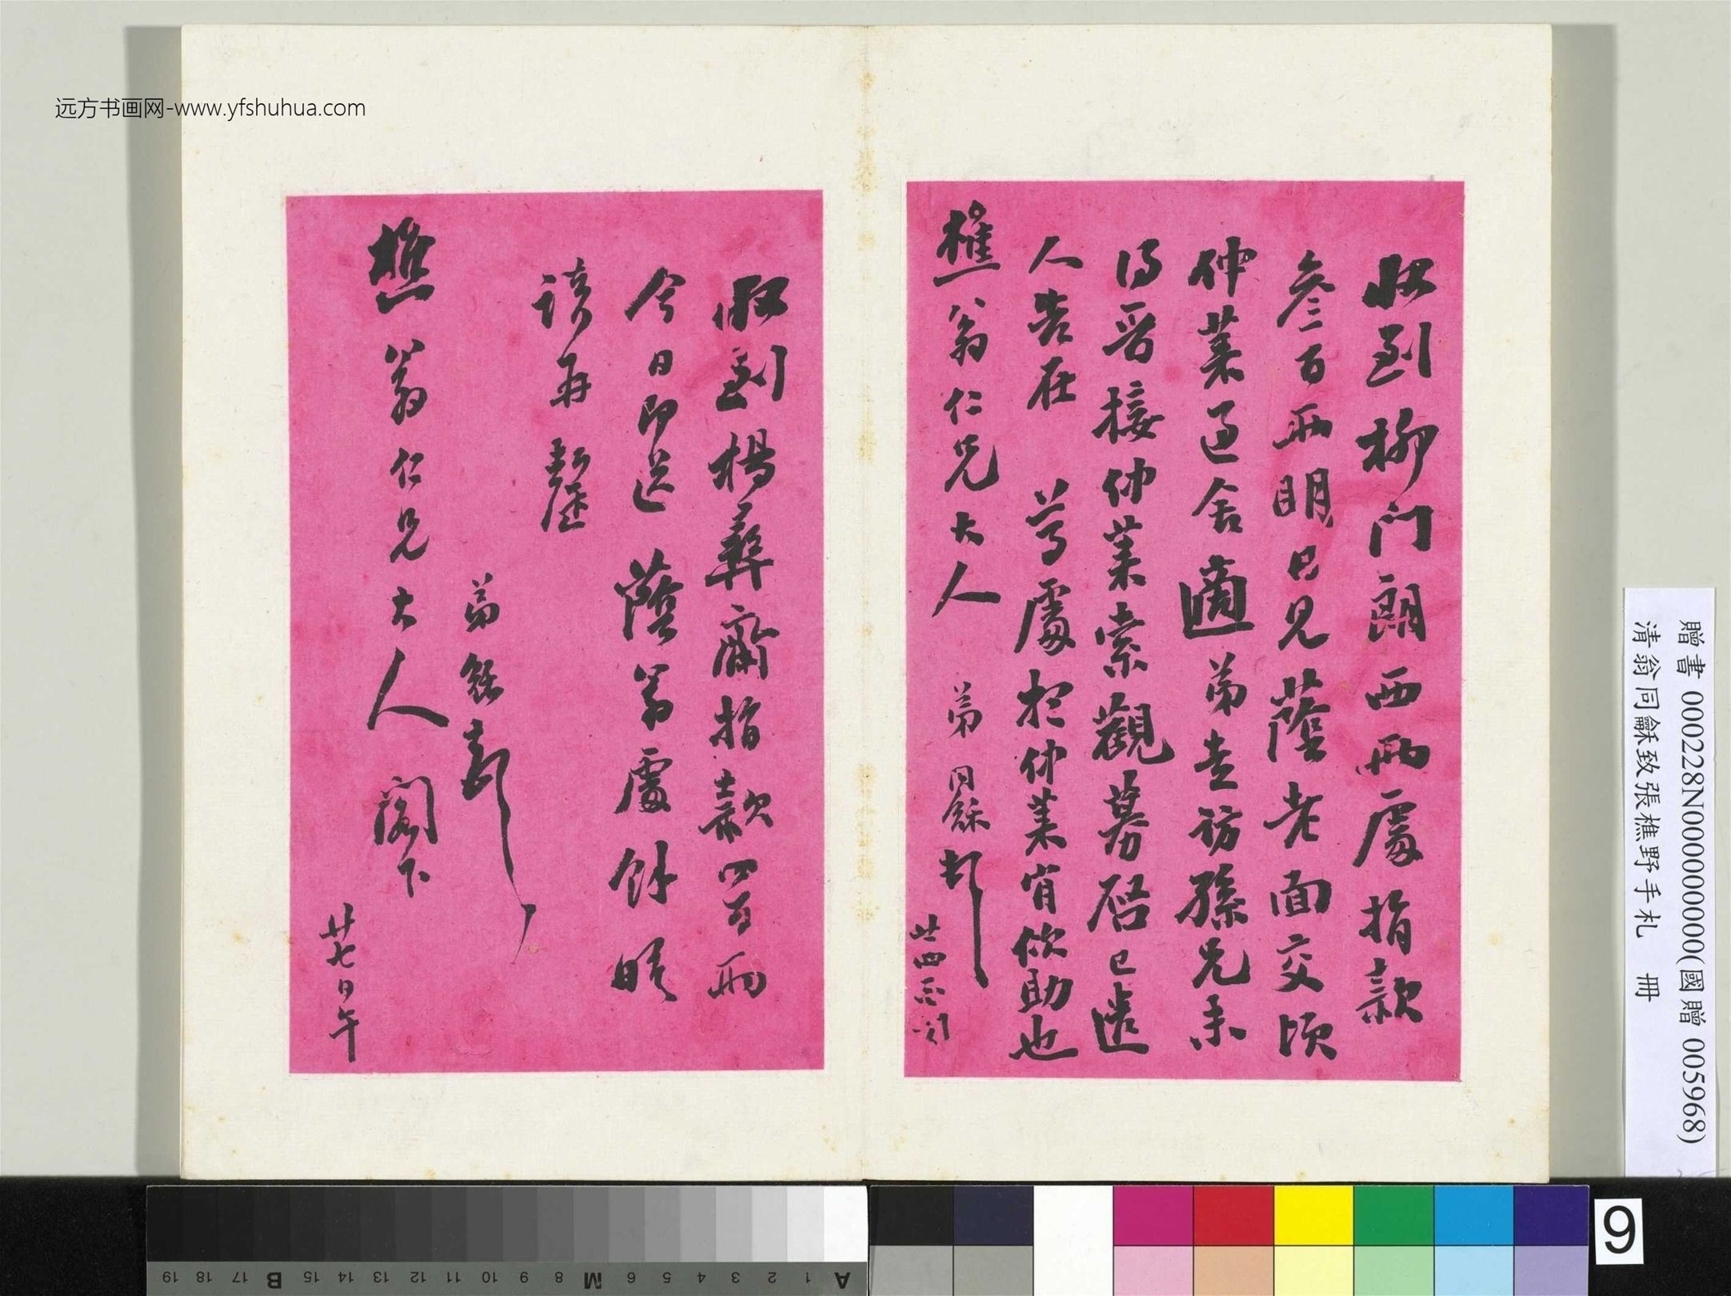 远方书画网-www.yfshuhua.com
收到柳门朗西兩處捐款
叁百兩明日見蔭老面交頃
仲葉過舍適弟走訪孫兄未
得晤接仲葉索觀募啓已送
人告在 尊處想仲葉肯佽助也
樵翁仁兄大人 弟同龢頓 廿四
收到楊彝齋捐款四百兩
今日即送蔭翁處餘晤
談再罄
弟龢頓
樵翁仁兄大人 閣下
廿七日午
贈書 000228N000000000(國贈 005968)
清翁同龢致張樵野手札 冊
A 1 2 3 4 5 6 M 8 9 10 11 12 13 14 15 B 17 18 19
9